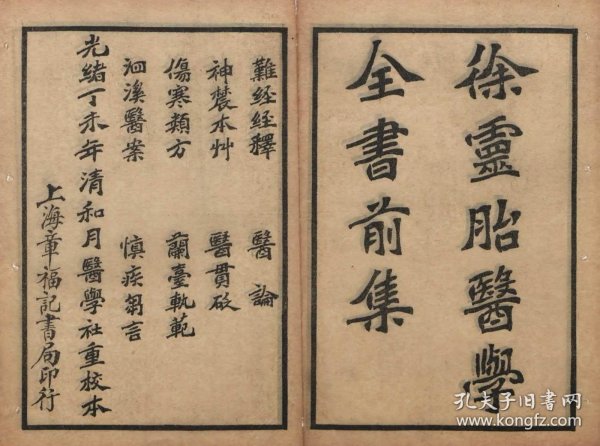 徐靈胎醫學
全書前集
難経経釋
醫論
神農本艸
醫貫砭
傷寒類方
蘭臺軌範
洄溪醫案
慎疾芻言
光緒丁未年清和月醫學社重校本
上海章福記書局印行
孔夫子旧书网
www.kongfz.com